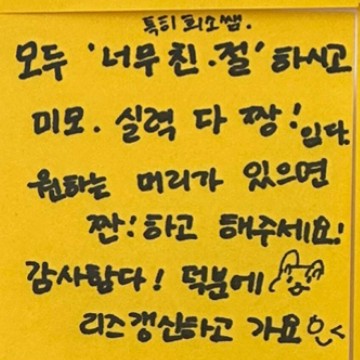 특히 희소쌤.
모두 '너무 친.절' 하시고
미모. 실력 다 짱! 입다.
원하는 머리가 있으면
짠! 하고 해주세요!
감사함다! 덕분에
리즈갱신하고 가요